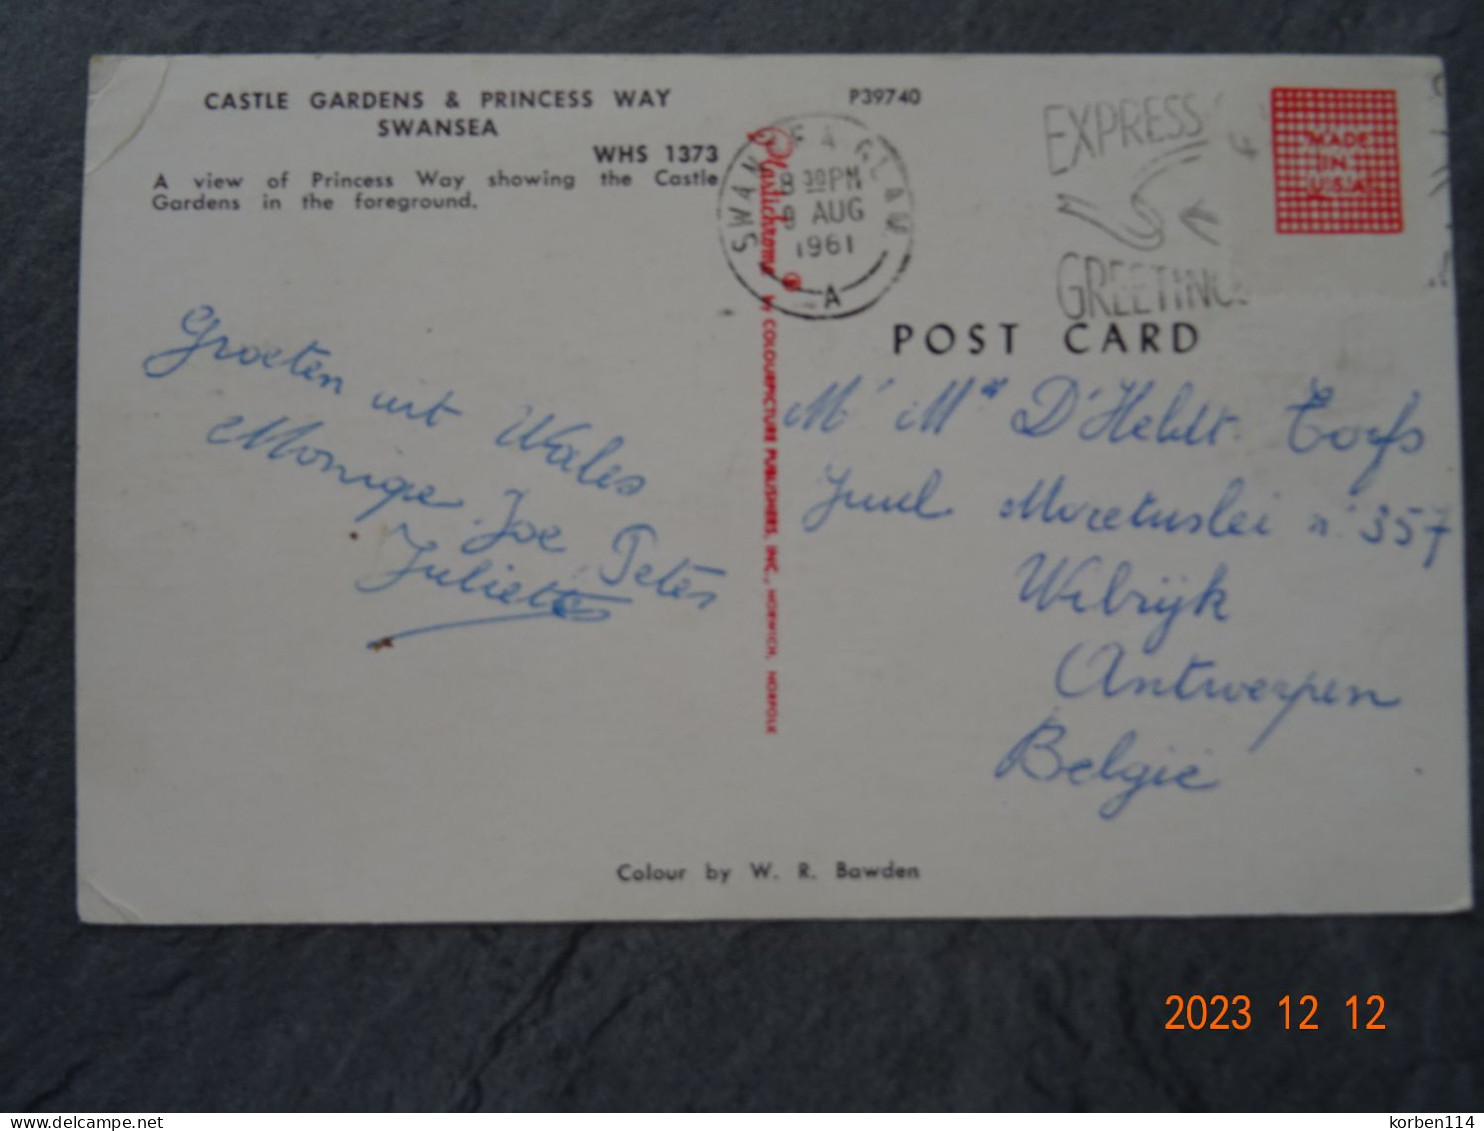 CASTLE GARDENS & PRINCESS WAY
SWANSEA
WHS 1373
A view of Princess Way showing the Castle
Gardens in the foreground.
P39740
SWANSEA GLAM
30PM
9 AUG
1961
A
EXPRESS
GREETING
MADE
IN
U.S.A.
Plastichrome
by COLOURPICTURE PUBLISHERS, INC., NORWICH, NORFOLK
POST CARD
Groeten uit Wales
Monique Joe Peter
Juliette
Mr Me D'Heldt Torfs
Juul Moretuslei n° 357
Wilrijk
Antwerpen
België
Colour by W. R. Bawden
2023 12 12
delcampe.net
korben114